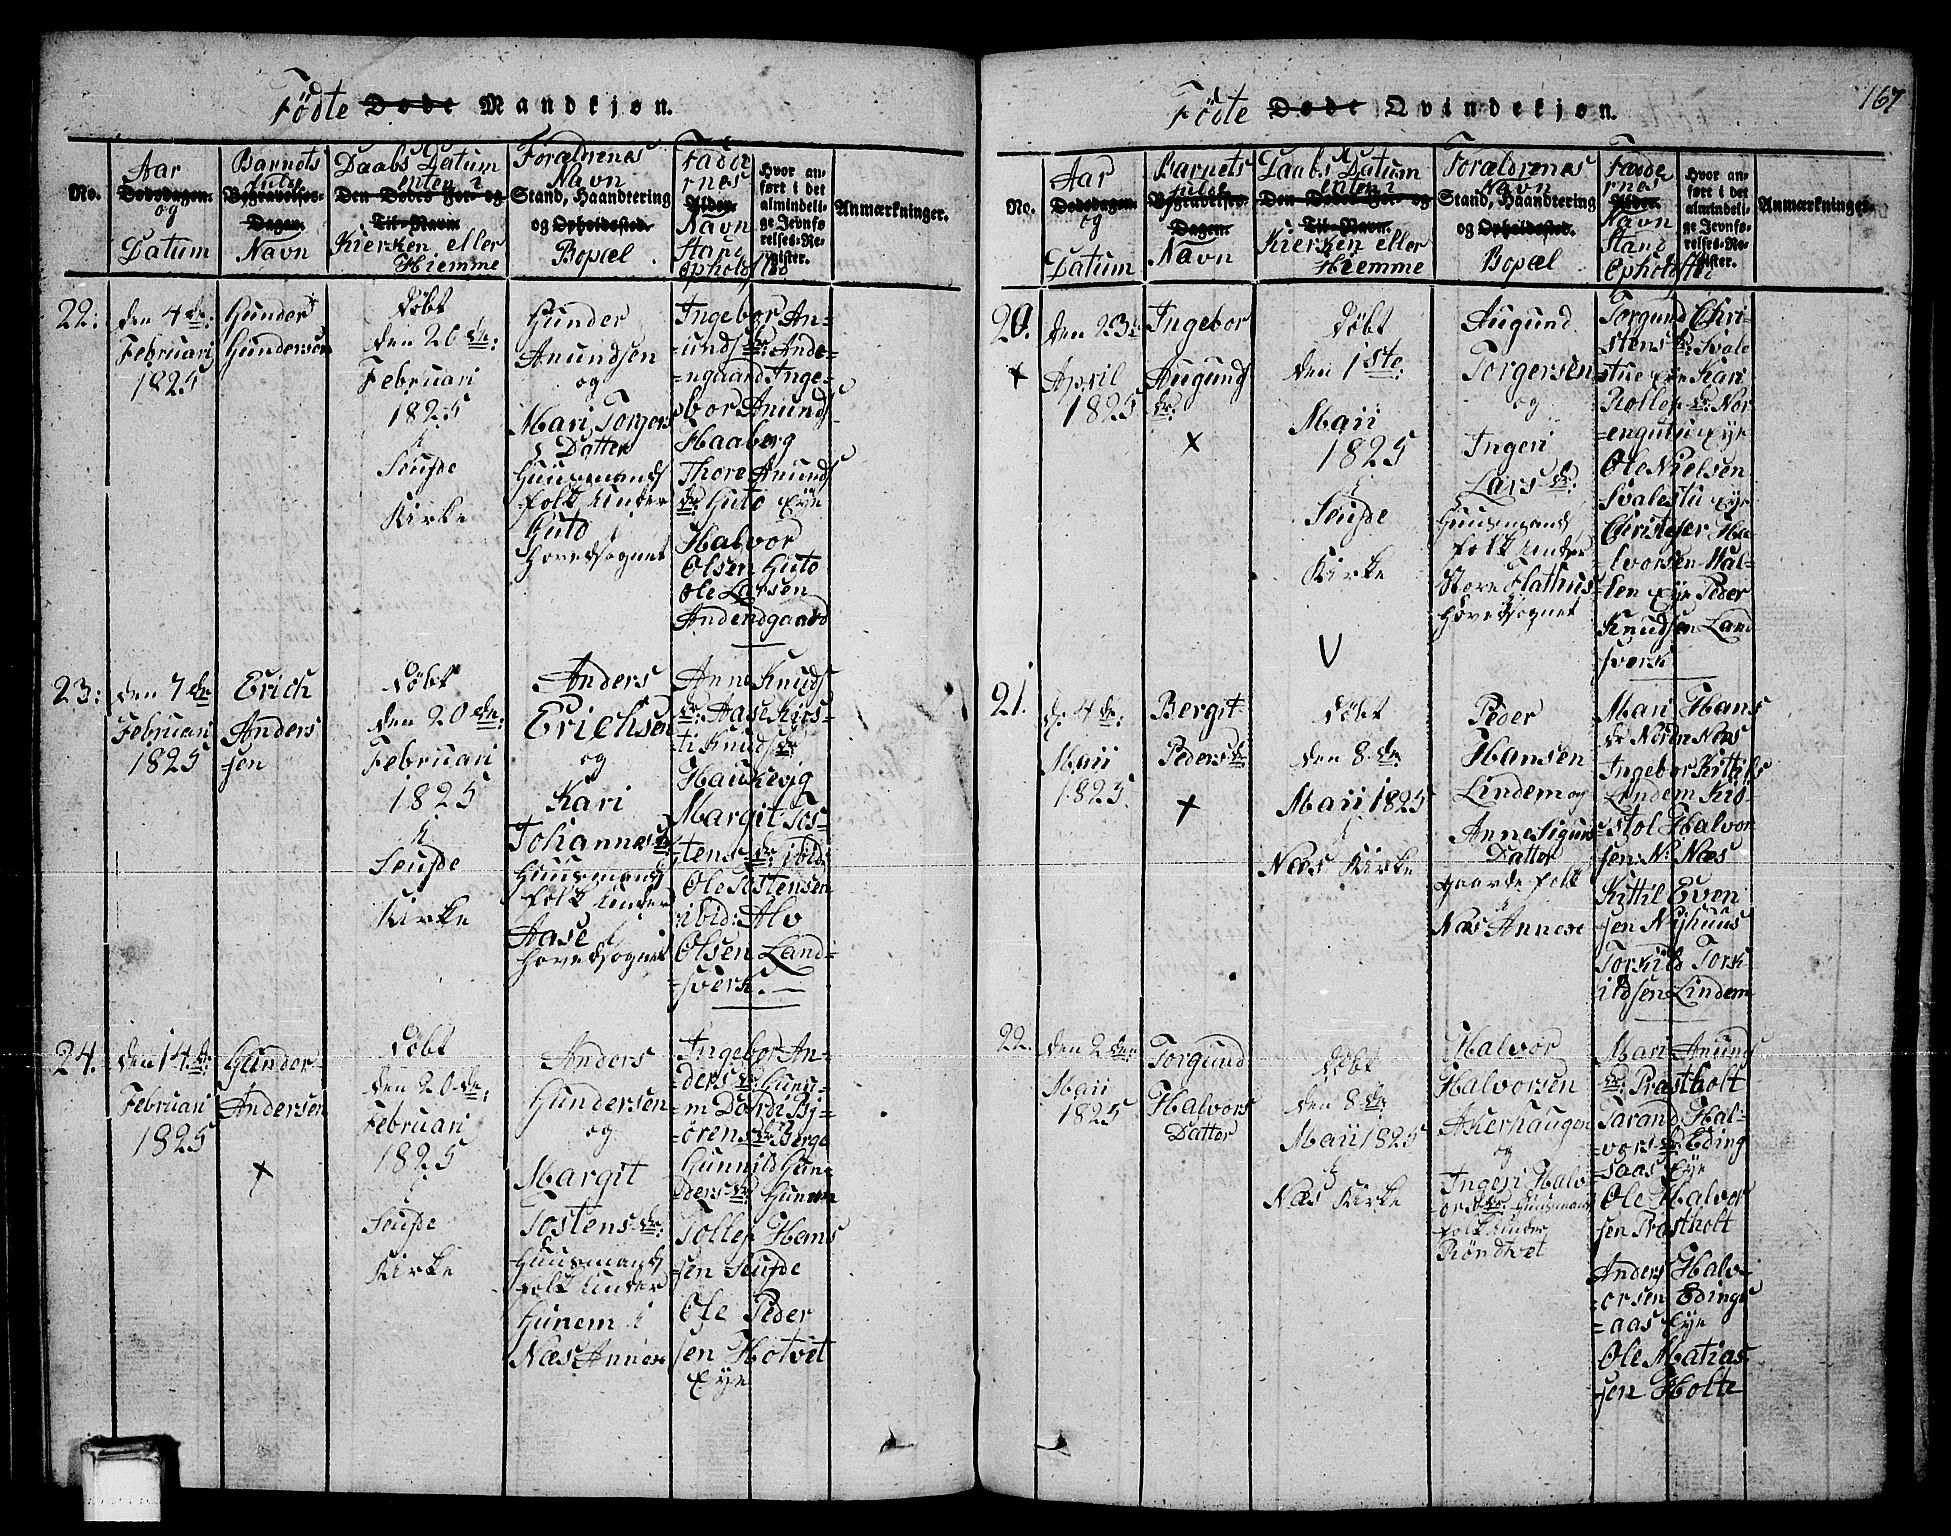 Fødte Døde Mandkjøn.
No.
Aar
Dødsdagen.
og
Datum
Barnets
fulde
Begravelses-
Dagen.
Navn
Daabs Datum
enten i
Den Dødes For- og
Til-Navn
Kierken eller
Hiemme
Forældrenes
Navn
Stand, Haandtering
og Opholdssted.
Bopæl
Fadde
rnes
Alder.
Navn
Stand
Opholdsted
Hvor an-
ført i det
almindeli-
ge Jevnfø-
relses-Re-
gister.
Anmærkninger.
22:
den 4 de:
Februari
1825
Gunder
Gundersen
døbt
den 20 de:
Februari
1825
i
Seufde
Kirke
Gunder
Anundsen
og
Mari Torgers
Datter
Huusmands
folk under
Huto
Hovedsognet
Ingebor An-
unds dr: Ande-
-ngaard Inge-
bor Anunds
Haaberg
Thore Anunds
dr: Huto Eye
Halvor
Olsen Huto
Ole Larsen
Andendgaard
23:
den 7 de
Februari
1825
Erich
Anders
sen
døbt
den 20 de:
Februari
1825
i
Seufde
Kirke
Anders
Erichsen
og
Kari
Johannes dr:
Huusmands
folk under
Aase i
Hovedsognet
Anne Knuds
dr: Aase Kirs-
ti Knuds dr
Haukevig
Margit Tos-
tens dr: ibid:
Ole Tostensen
ibid: Alv
Olsen Land=
=sverk.
24.
den 14. de:
Februari
1825
Gunder
Andersen
+
døbt
den 20 de:
Februari
1825
i
Seufde
Kirke
Anders
Gundersen
og
Margit
Tostens dr:
Huusmands
folk under
Hunem i
Næs Annexe
Ingebor An-
ders dr: Hune-
m Dordi Bi-
ørens dr: Berge
Gunnild Gun-
ders dr: Hunem
Tollef Hans
sen Seufde
Ole Peder
sen Hotvet
Eye
Fødte Døde Qvindekjøn.
167
No.
Aar
Dødsdagen.
og
Datum
Barnets
fulde
Begravelses-
Dagen.
Navn
Daabs Datum
enten i
Den Dødes For- og
Til-Navn
Kierken eller
Hiemme
Forældrenes
Navn
Stand, Haandtering
og Opholdssted.
Bopæl
Fadde
rnes
Alder.
Navn
Stand
Opholdsted
Hvor an-
ført i det
almindeli-
ge Jevnfø-
relses-Re-
gister.
Anmærkninger.
20.
+
den 23:
April
1825
Ingebor
Augund
dr:
+
døbt
den 1ste:
Maii
1825
i
Seufde
Kirke
V
Augund
Torgersen
og
Ingeri
Lars dr:
Huusmands
folk under
Store Flathus
Hovedsognet
Torgund Chri-
stens dr: Svale
stue Eye Kari
Rollef dr: Nor
engutu Eye
Ole Nielsen
Svalestu Eye
Christofer Ha
lvorsen Wal-
-len Eye Peder
Knudsen Land
sverk
21.
d. 4 de:
Maii
1825.
Bergit
Peders dr:
+
døbt
den 8. de
Maii 1825
i
Næs Kirke
Peder
Hansen
Lindem og
Anne Sigurds
Datter
gaarde folk
Næs Annexe
Mari Hans
dr Nordr Næs
Ingebor Kittils
Lindem Kiø-
stol Halvor
sen N: Næs
Kittil Even
sen Nishuus
Torkild Tork
ildsen Lindem
22.
den 2 den:
Maii
1825
Torgund
Halvors
Datter
døbt
den 8 de:
Maii 1825
i
Næs Kirke
Halvor
Halvorsen
Akerhaugen
og
Ingeri Halv-
ors dr: Huusmands
folk under
Røndtvet
Mari Anunds
dr: Præstholt
Tarand Hal-
vors dr: Eding
saas Eye
Ole Halvor
sen Præstholt
Anders Halv-
-orsen Edings
-aas Eye
Ole Matias
sen Holte